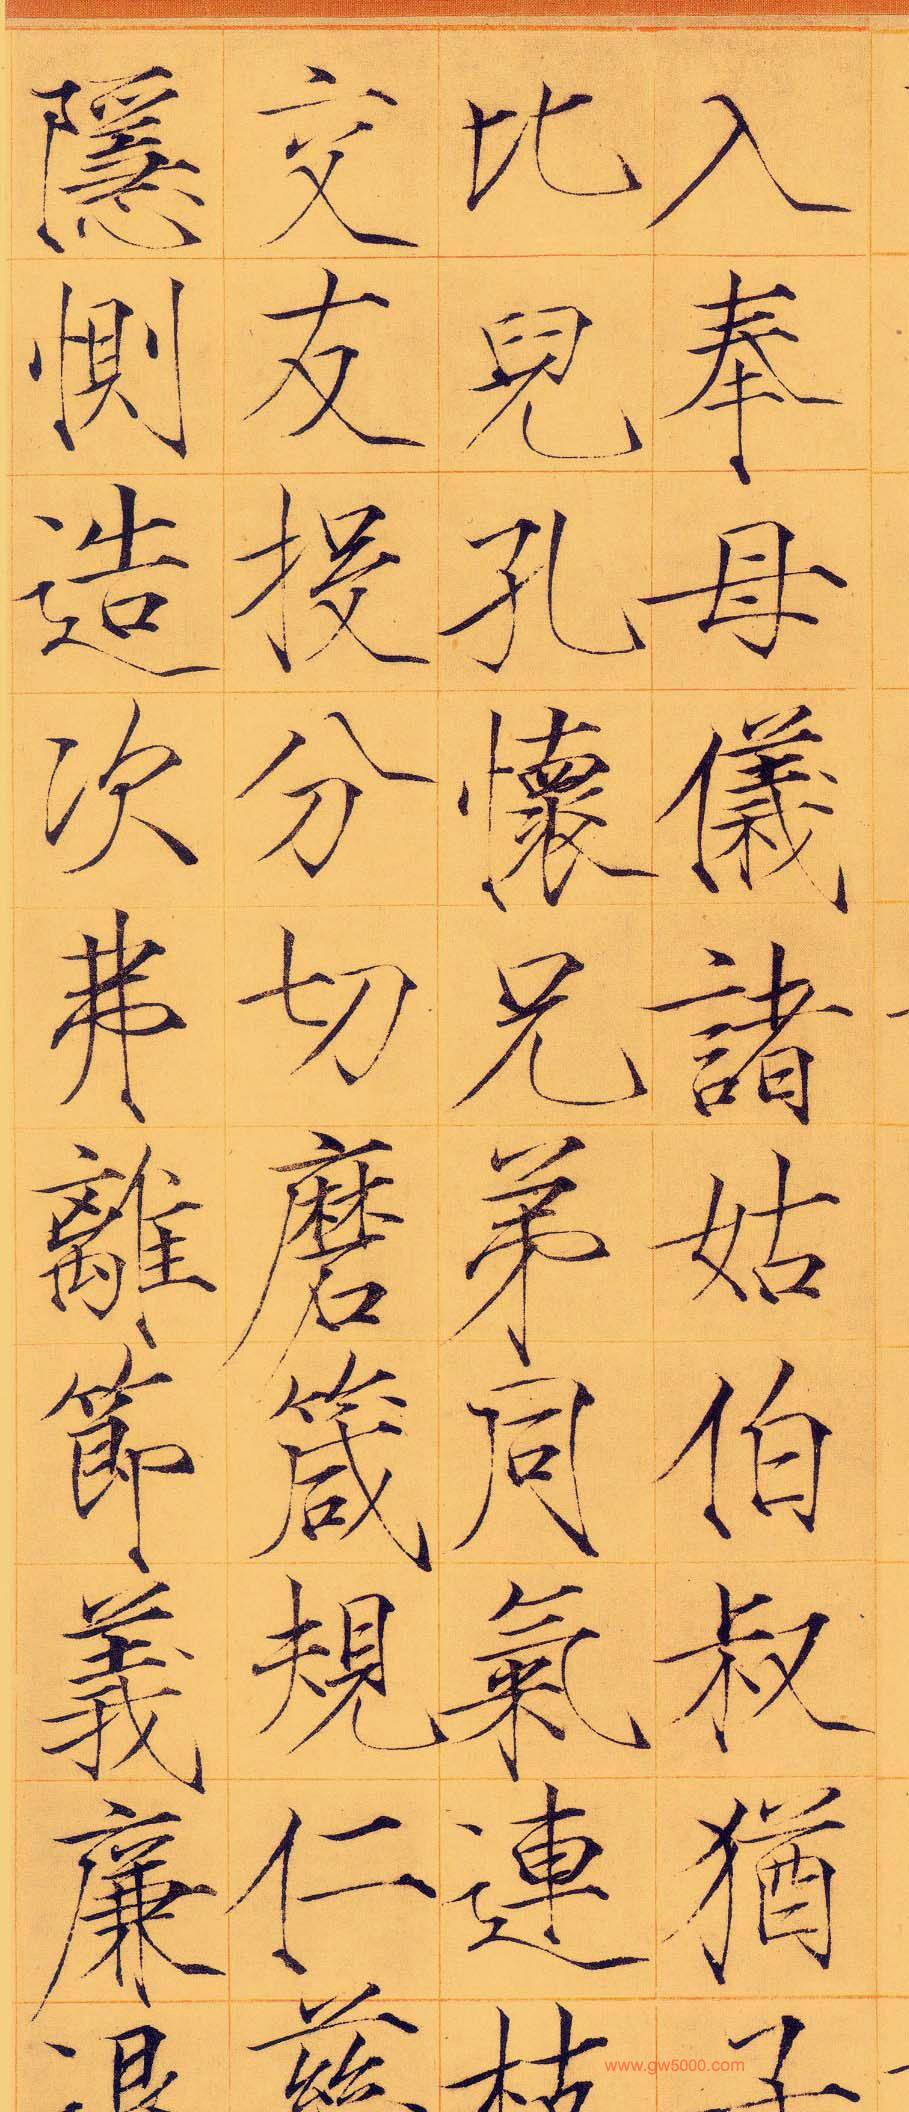 入奉母儀諸姑伯叔猶子
比兒孔懷兄弟同氣連枝
交友投分切磨箴規仁慈
隱惻造次弗離節義廉退
www.gw5000.com